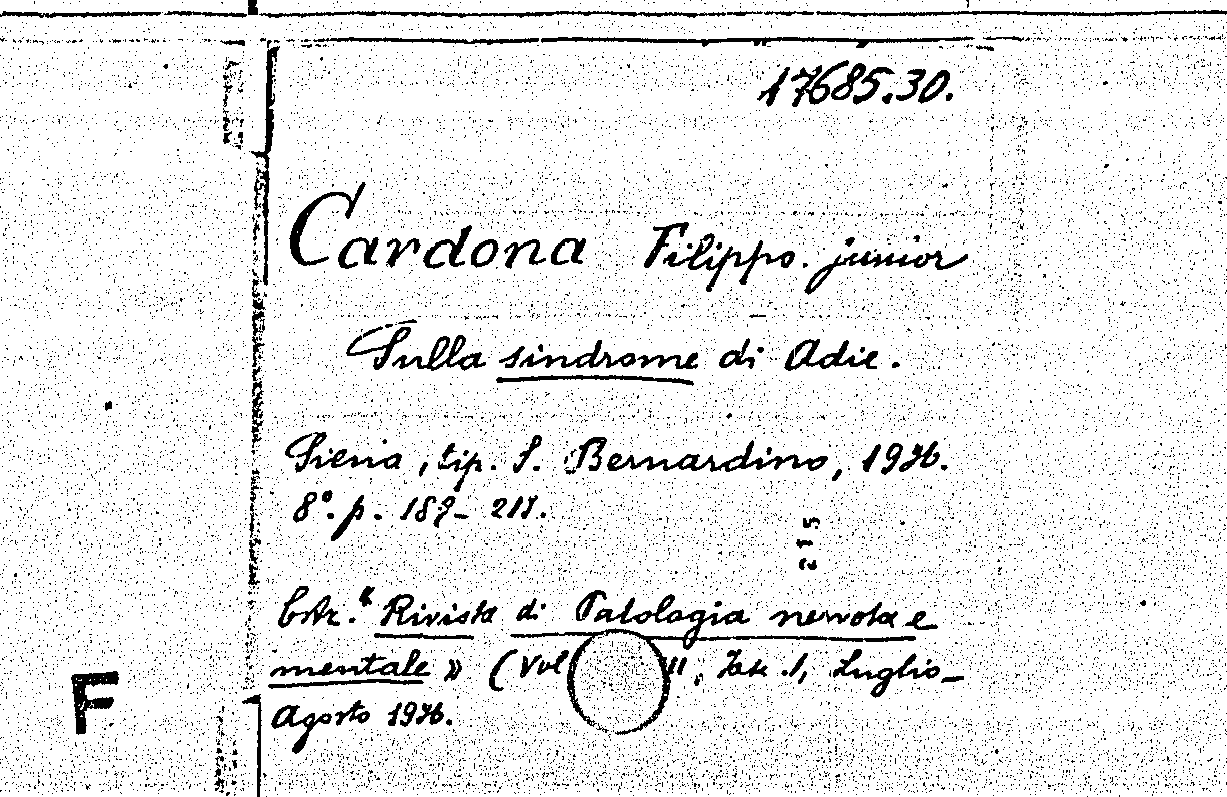 17685.30.
Cardona Filippo. junior
Sulla sindrome di Adie.
Siena, tip. S. Bernardino, 1936.
8°. p. 187-
215
Estr. "Rivista di Patologia nervosa e
mentale" (Vol , Fasc. 1, Luglio-
Agosto 1936.
F